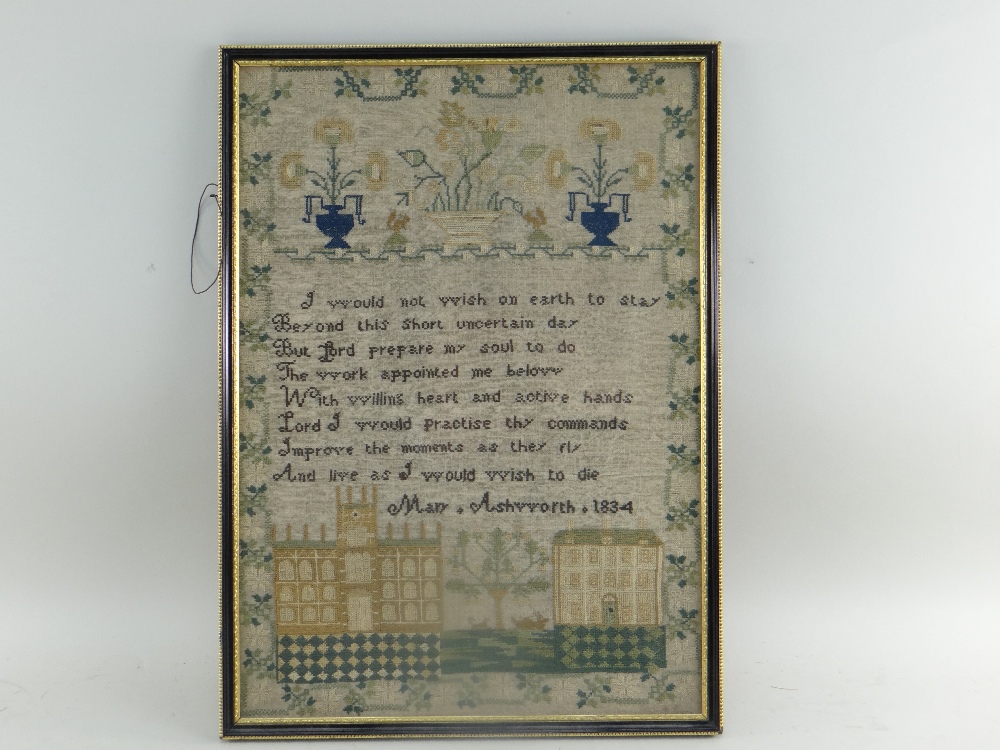 I would not wish on earth to stay
Beyond this short uncertain day
But Lord prepare my soul to do
The work appointed me below
With willing heart and active hands
Lord I would practise thy commands
Improve the moments as they fly
And live as I would wish to die
Mary . Ashworth . 1834